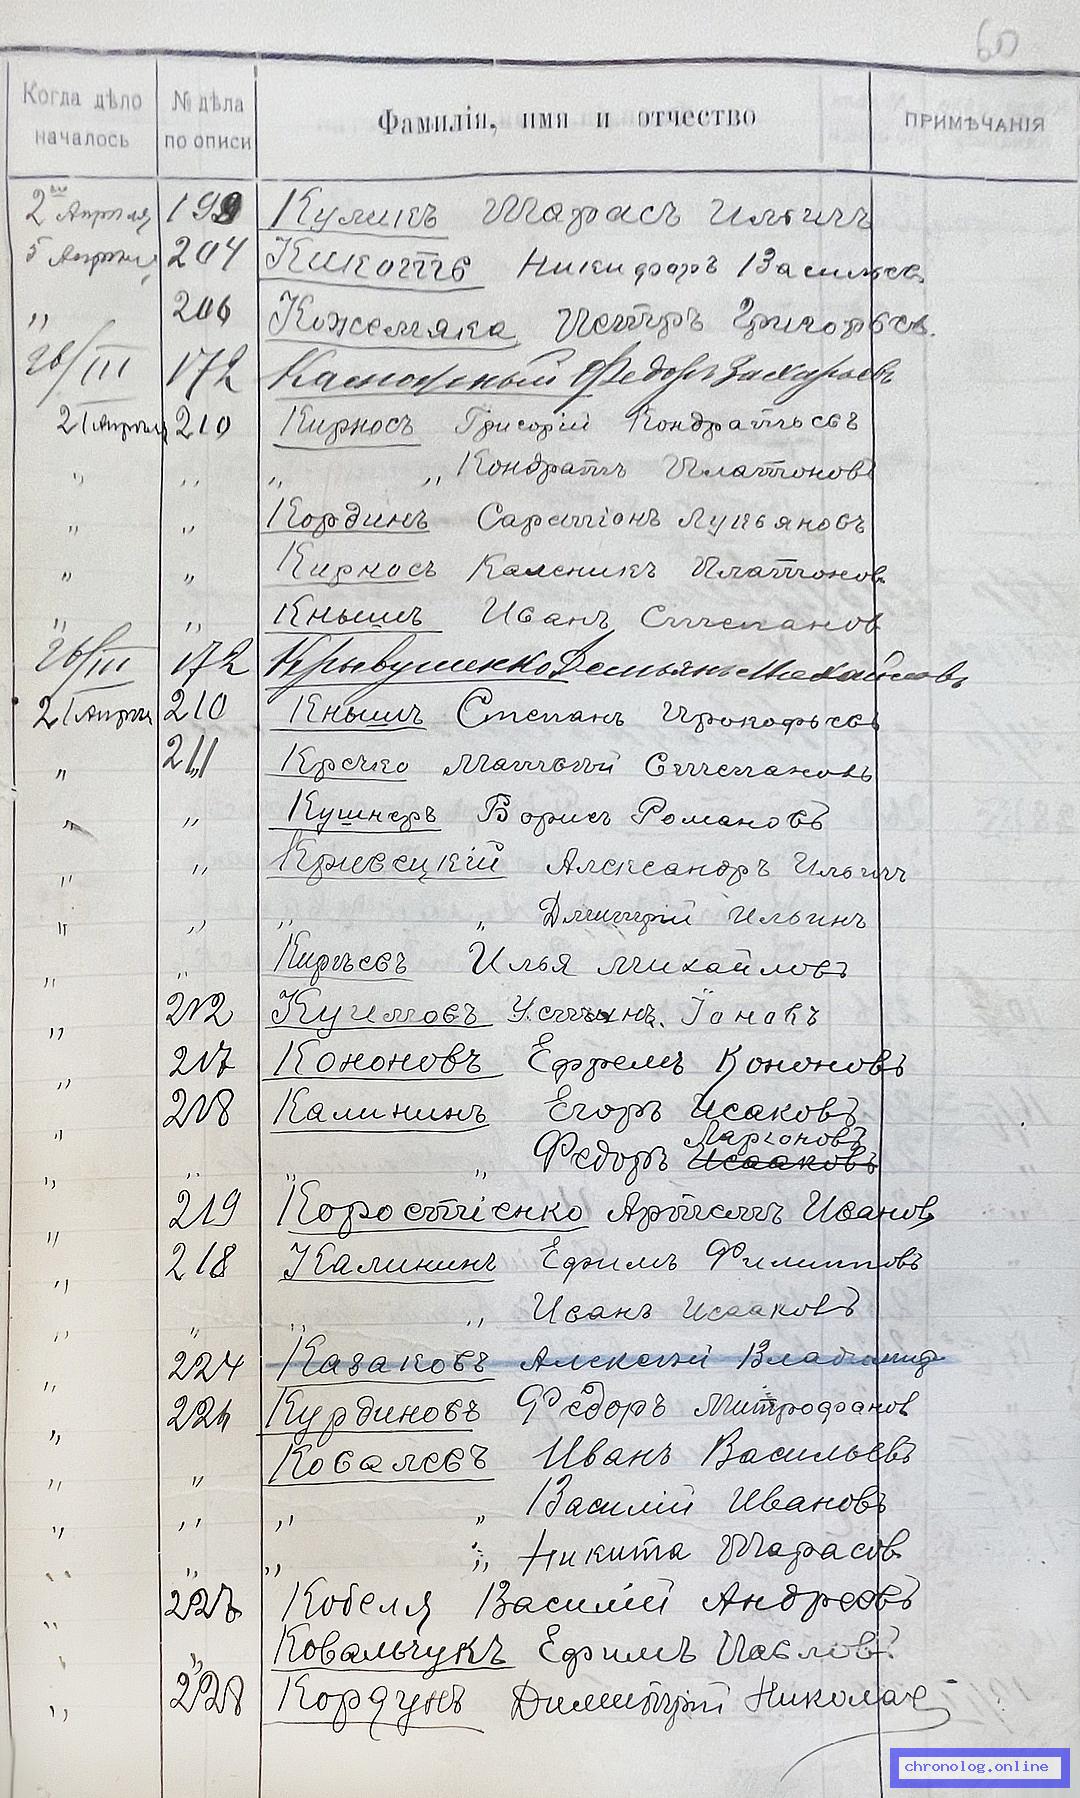 60
Когда дѣло началось № дѣла по описи Фамилія, имя и отчество ПРИМѢЧАНІЯ
2го Апрѣля 199 Куликъ Тарасъ Ильичъ
5 Апрѣля 204 Кикоть Никифоръ Васильев.
" 206 Кожемяка Петръ Григорьев.
26/III 172 Федоръ Захарьевъ
21 Апрѣля 210 Кирносъ Григорій Кондратьевъ
" " " " Кондратъ Платоновъ
" " Кординъ Сарапіонъ Лукьяновъ
" " Кирносъ Калсникъ Платонов.
" " Кнышъ Иванъ Степанов
26/III 172 Крывушенко Демьянъ Михайловъ
21 Апрѣля 210 Кнышъ Степанъ Прокофьевъ
" 211 Кречко Матвей Степановъ
" " Кушнеръ Борисъ Романовъ
" " Кривецкій Александръ Ильичъ
" " " " Дмитрій Ильинъ
" " Киръевъ Илья Михайловъ
" 212 Іоновъ
" 217 Кононовъ Ефремъ Кононовъ
" 218 Калининъ Егоръ Исаковъ
Ларіоновъ
" " " " Федоръ Исааковъ
" 219 Коростіенко Артемъ Иванов
" 218 Калининъ Ефимъ Филипповъ
" " " " Иванъ Исааковъ
" 224 Казаковъ Алексей Владимир
" 224 Курдиновъ Федоръ Митрофанов
" " Ковалевъ Иванъ Васильевъ
" " " " Василій Ивановъ
" " " " Никита Тарасов
" 227 Кобеля Василій Андреевъ
" " Ковальчукъ Ефимъ Павловъ
" 228 Кордунъ Димитрій Николае
chronolog.online